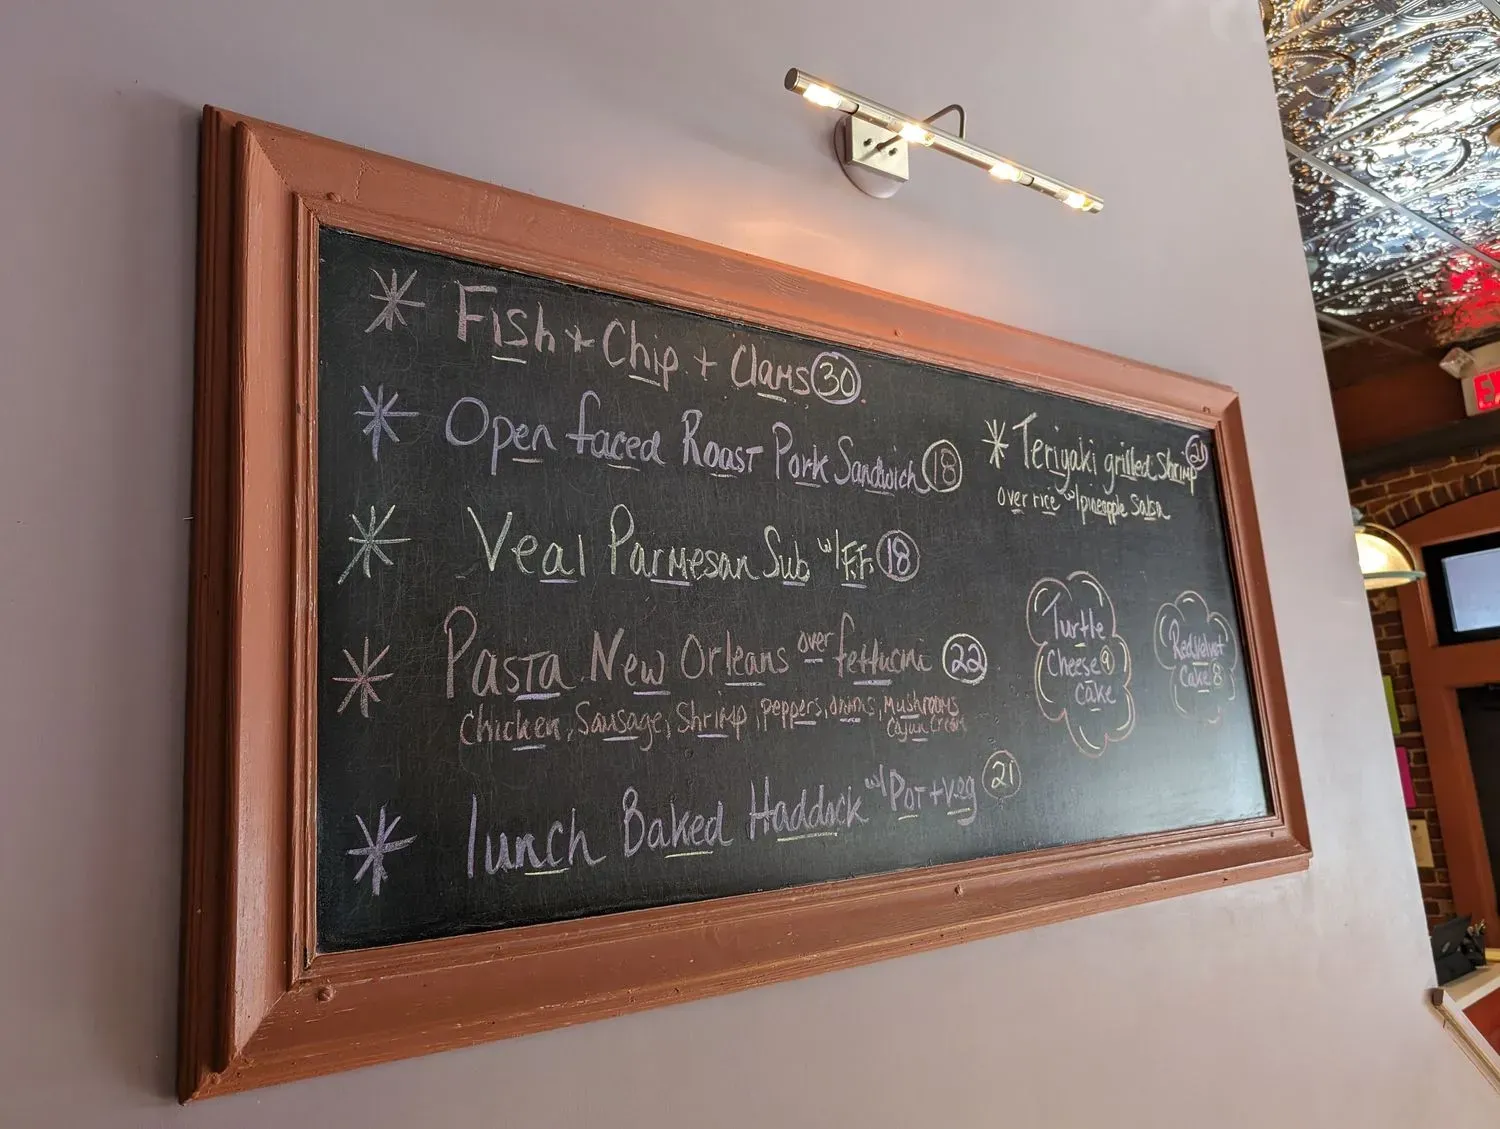 Fish + Chip + Clams 30
Open faced Roast Pork Sandwich 18
Veal Parmesan Sub w/ F.F. 18
Pasta New Orleans over fettucini 22
Chicken, Sausage, Shrimp, peppers, onions, Mushrooms
Cajun Cream
lunch Baked Haddock w/ Pot + veg 21
Teriyaki grilled Shrimp 21
over rice w/ pineapple Salsa
Turtle
Cheese 9
Cake
Red Velvet
Cake 8
EX